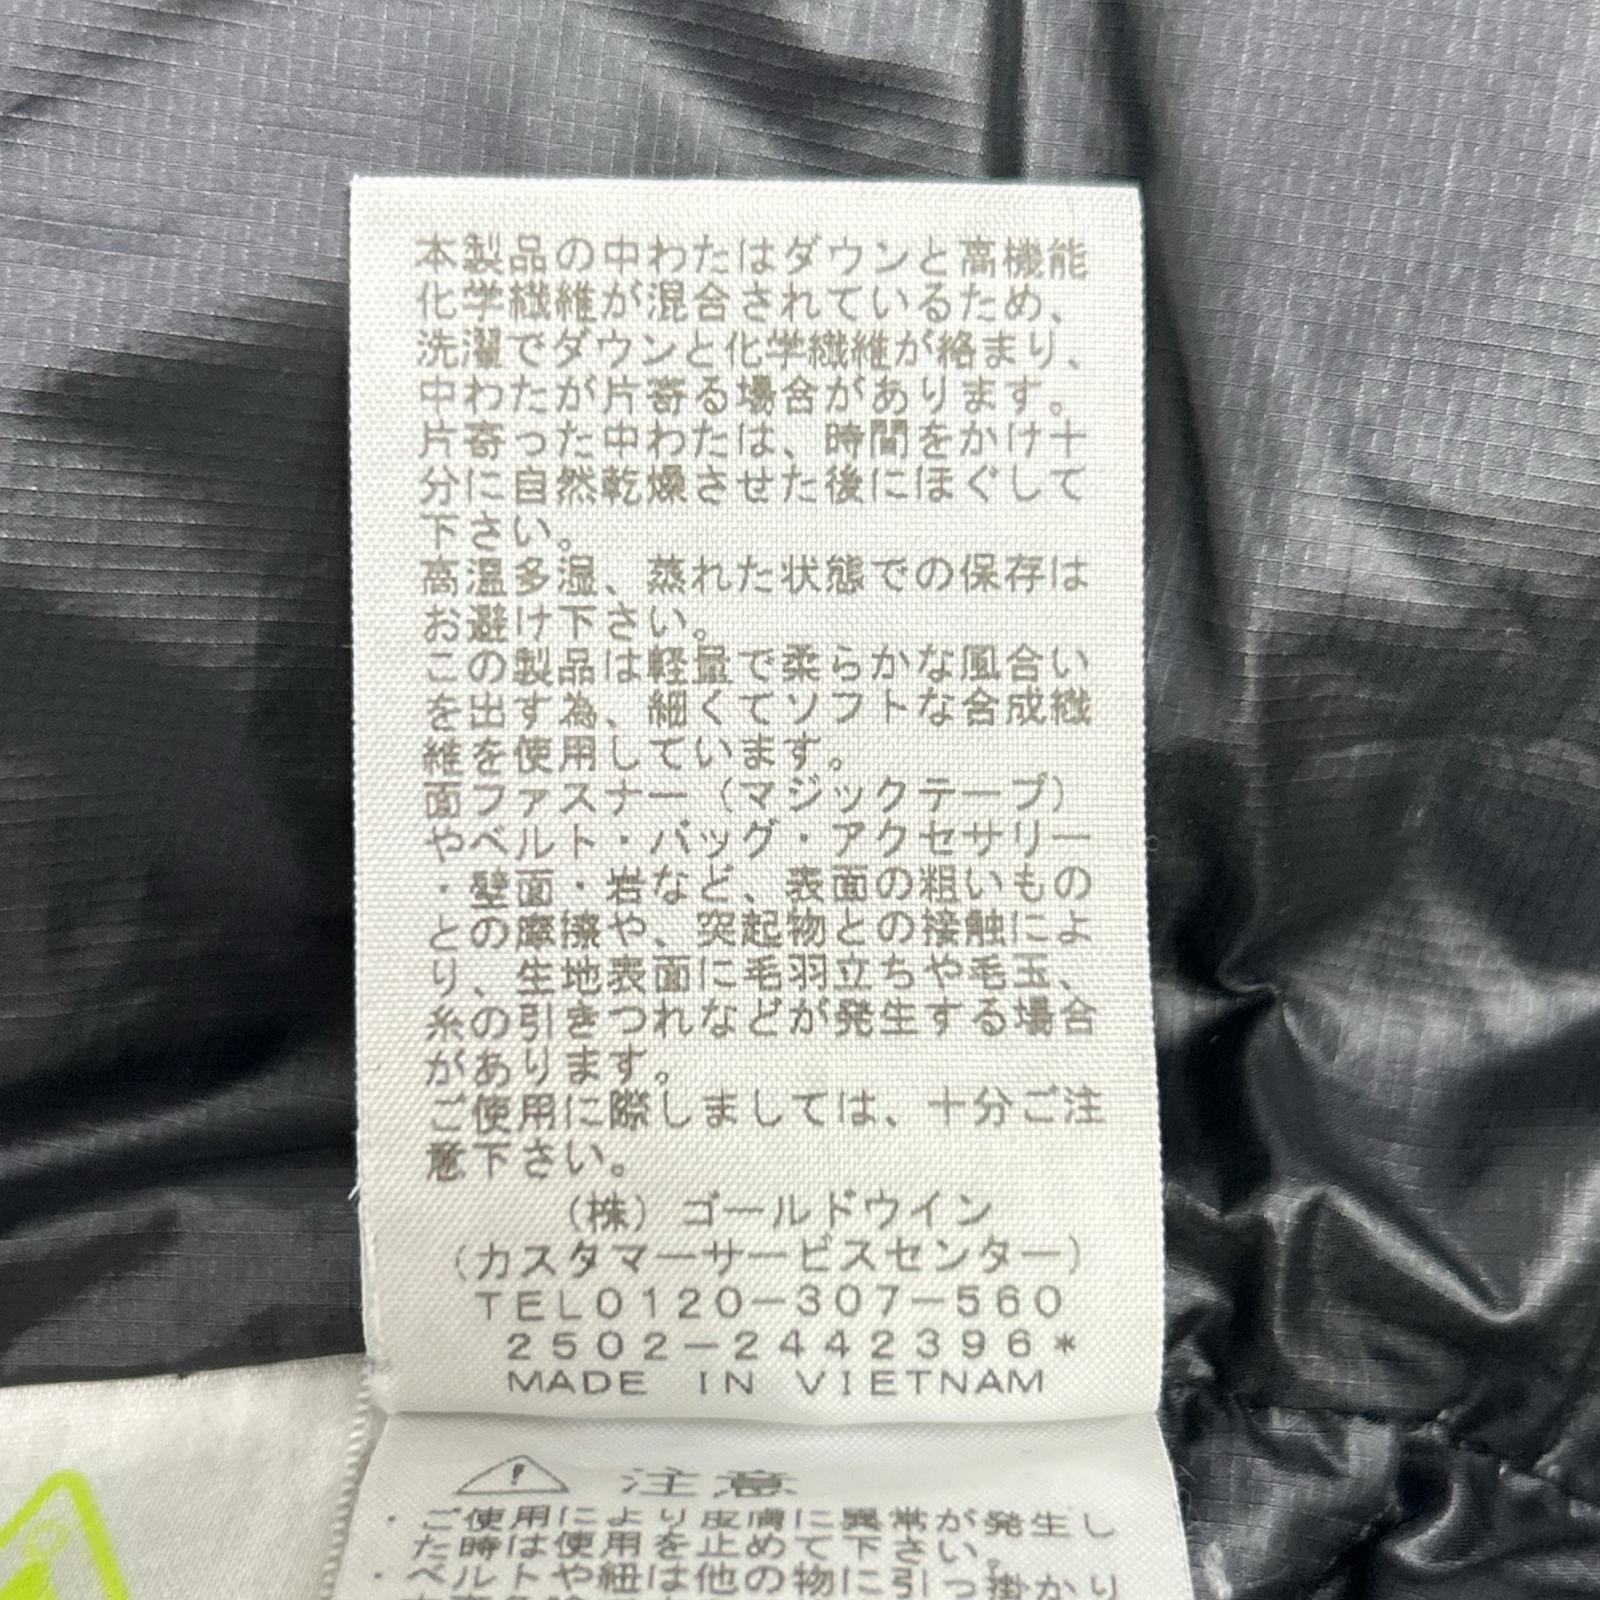 本製品の中わたはダウンと高機能
化学繊維が混合されているため、
洗濯でダウンと化学繊維が絡まり、
中わたが片寄る場合があります。
片寄った中わたは、時間をかけ十
分に自然乾燥させた後にほぐして
下さい。
高温多湿、蒸れた状態での保存は
お避け下さい。
この製品は軽量で柔らかな風合い
を出す為、細くてソフトな合成繊
維を使用しています。
面ファスナー（マジックテープ）
やベルト・バッグ・アクセサリー
・壁面・岩など、表面の粗いもの
との摩擦や、突起物との接触によ
り、生地表面に毛羽立ちや毛玉、
糸の引きつれなどが発生する場合
があります。
ご使用に際しましては、十分ご注
意下さい。
（株）ゴールドウイン
（カスタマーサービスセンター）
TEL0120－307－560
2502－2442396*
MADE IN VIETNAM
注意
・ご使用により皮膚に異常が発生し
た時は使用を止めて下さい。
・ベルトや紐は他の物に引っ掛かり